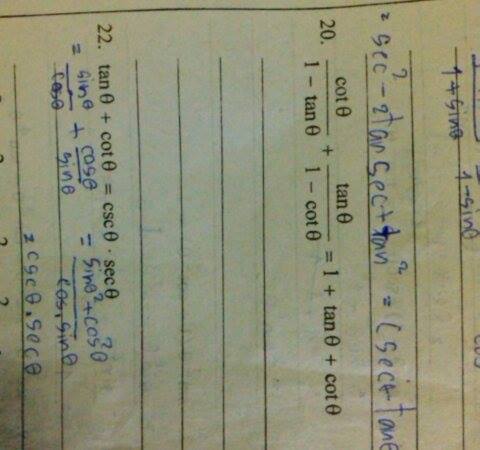 1+sinθ 1-sinθ
= sec² - 2tan sec + tan² = (sec - tanθ
20. cotθ/(1 - tanθ) + tanθ/(1 - cotθ) = 1 + tanθ + cotθ
22. tanθ + cotθ = cscθ · secθ
= sinθ/cosθ + cosθ/sinθ = sinθ² + cos²θ/cos.sinθ
= cscθ.secθ